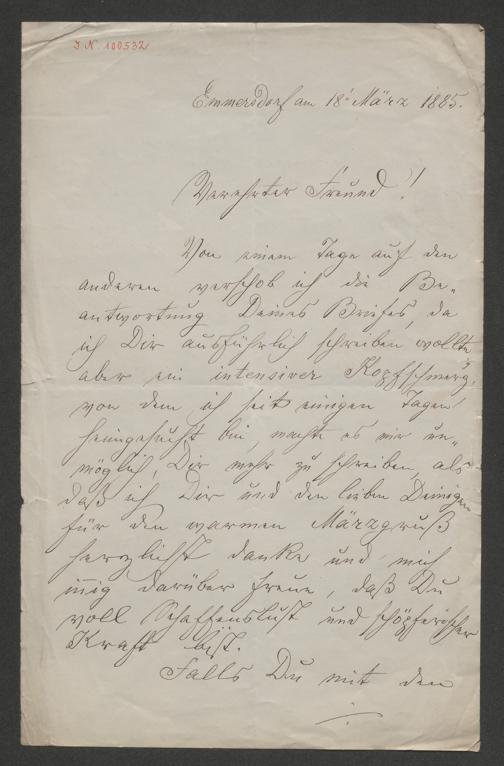 J.N. 100532
Emmersdorf am 18' März 1885.
Verehrter Freund!
Von einem Tage auf den
anderen verschob ich die Be-
antwortung Deines Briefes, da
ich Dir ausführlich schreiben wollte,
aber ein intensiver Kopfschmerz,
von dem ich seit einigen Tagen
heimgesucht bin, machte es mir un-
möglich, Dir mehr zu schreiben, als
daß ich Dir und den lieben Deinigen
für den warmen Märzgruß
herzlichst danke und mich
innig darüber freue, daß Du
voll Schaffenslust und schöpferischer
Kraft bist.
Falls Du mit den